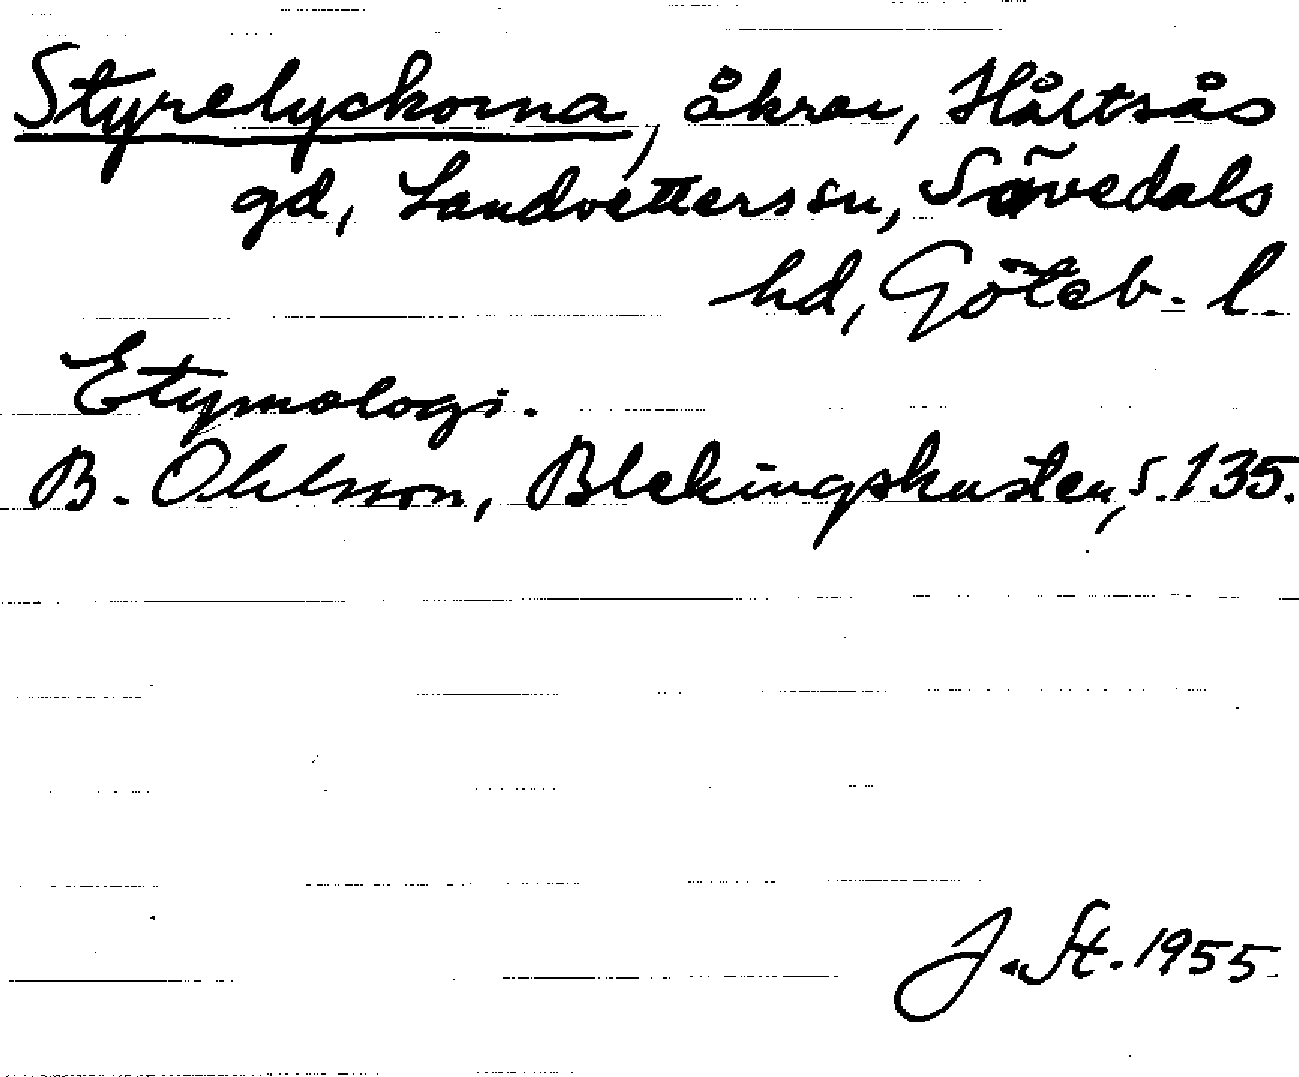 Styrelyckorna, åkrar, Håltsås
gd, Landvetters sn, Sävedals
hd, Göteb. l.
Etymologi.
B. Ohlsson, Blekingskusten, s. 135.
J. St. 1955